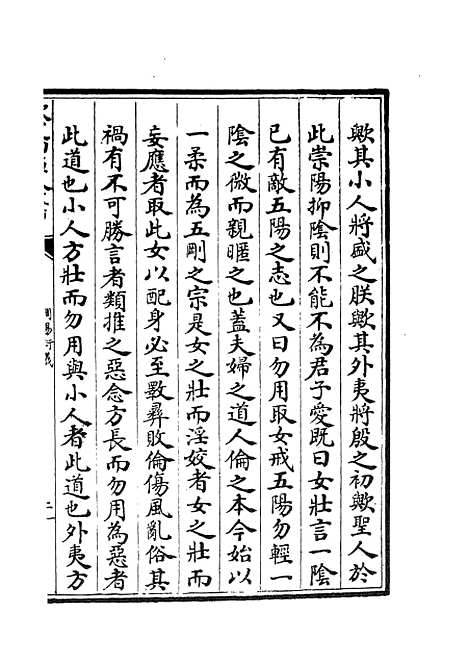 歟其小人將盛之朕歟其外夷將殷之初歟聖人於
此崇陽抑陰則不能不為君子愛既曰女壯言一陰
已有敵五陽之志也又曰勿用取女戒五陽勿輕一
陰之微而親暱之也蓋夫婦之道人倫之本今始以
一柔而為五剛之宗是女之壯而淫姣者女之壯而
妄應者取此女以配身必至斁彝敗倫傷風亂俗其
禍有不可勝言者類推之惡念方長而勿用為惡者
此道也小人方壯而勿用與小人者此道也外夷方
周易衍義